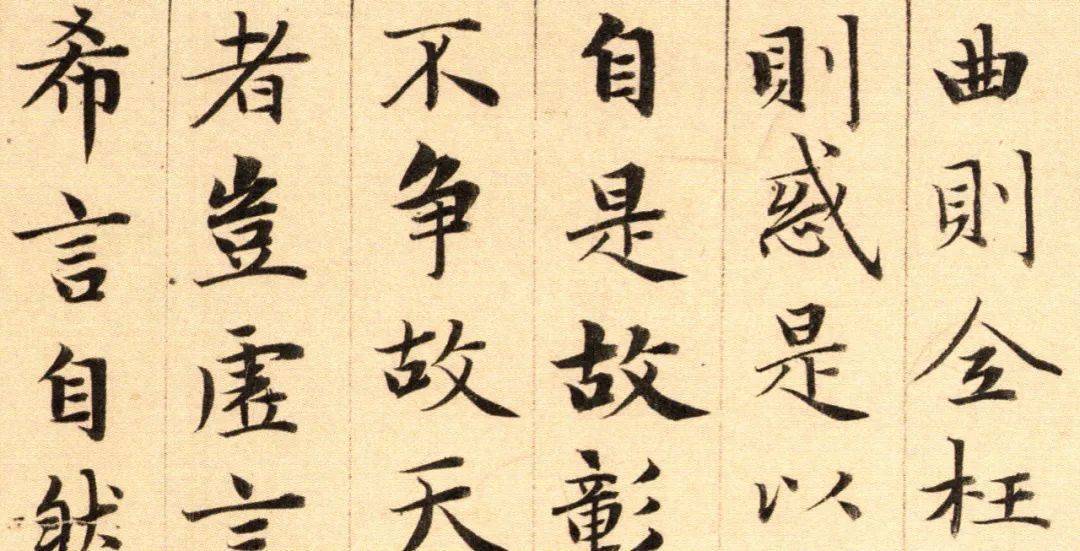 曲則全枉
則惑是以
自是故彰
不争故天
者豈虚言
希言自然